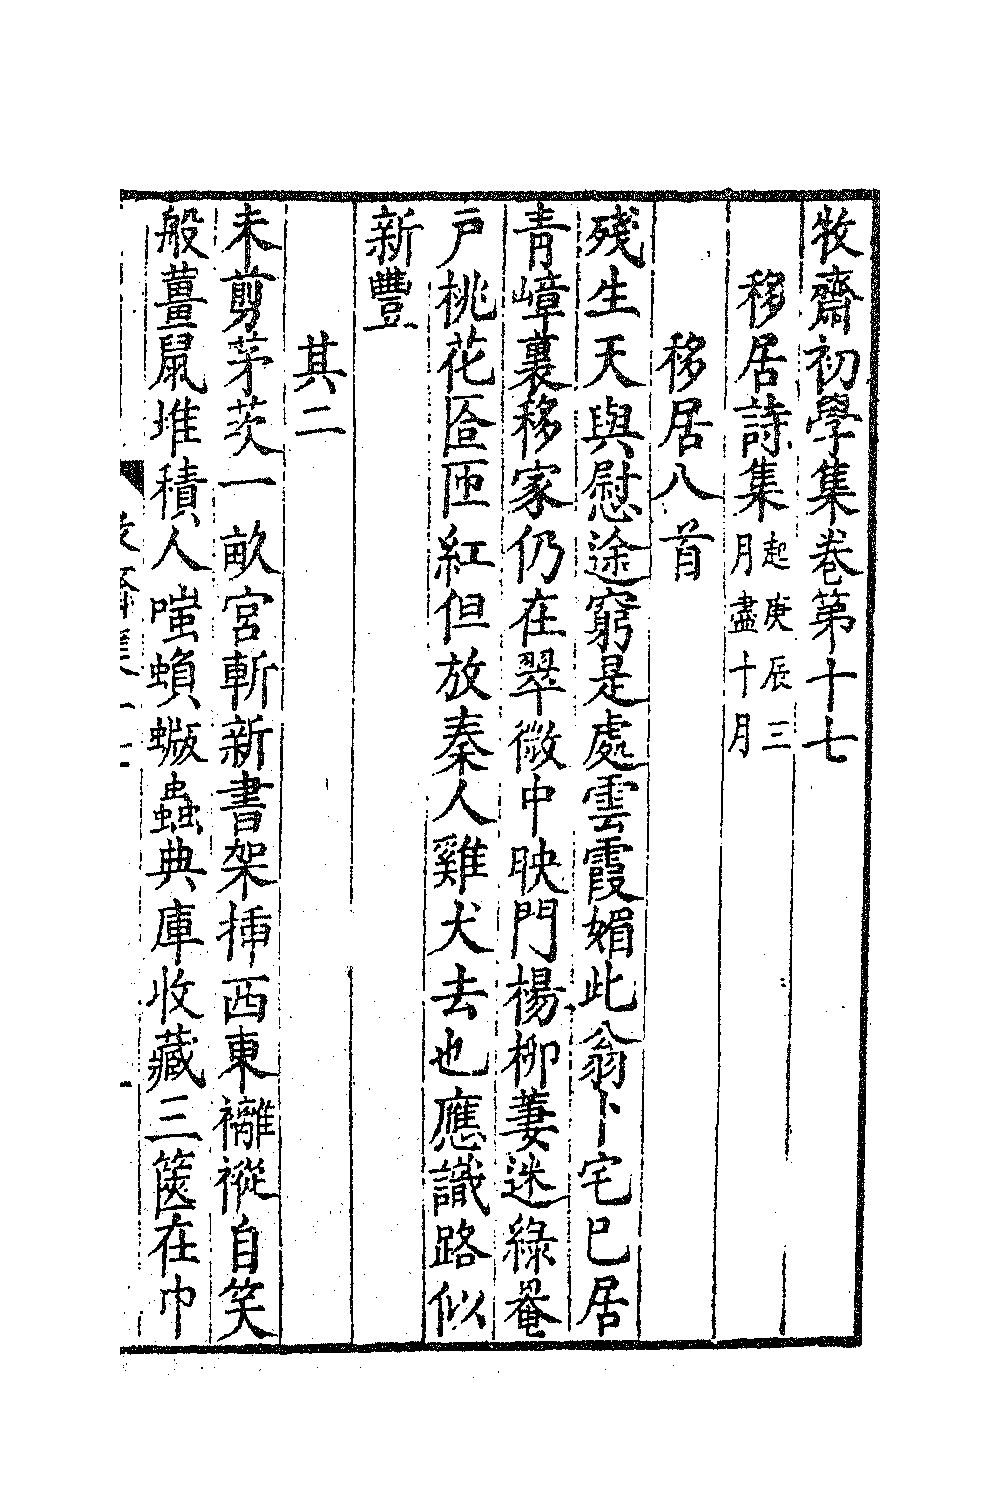 牧齋初學集卷第十七
移居詩集起庚辰三月盡十月
移居八首
殘生天與慰途窮是處雲霞媚此翁卜宅巳居
青嶂裏移家仍在翠微中映門楊柳萋迷綠罨
戸桃花匼匝紅但放秦人雞犬去也應識路似
新豐
其二
未剪茅茨一畝宮斬新書架揷西東褵褷自笑
般薑鼠堆積人嗤蝜蝂蟲典庫收藏三篋在巾